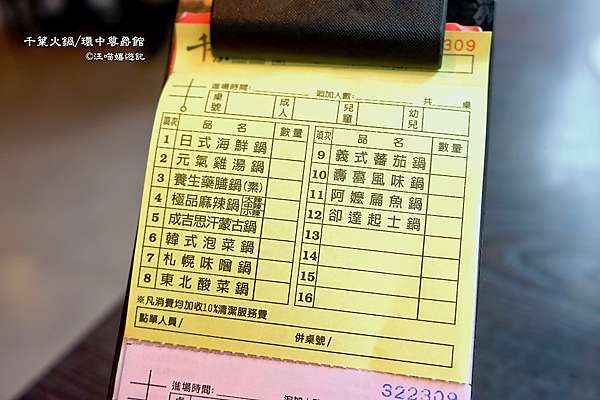 千葉火鍋/環中尊爵館
©汪喵嬉遊記
千
309
進場時間:
追加人數:
共 桌
桌號 成人 兒童 幼兒
項次 品名 數量 項次 品名 數量
1 日式海鮮鍋 9 義式蕃茄鍋
2 元氣雞湯鍋 10 壽喜風味鍋
3 養生藥膳鍋(素) 11 阿嬤扁魚鍋
4 極品麻辣鍋 大辣 中辣 小辣 12 卻達起士鍋
5 成吉思汗蒙古鍋 13
6 韓式泡菜鍋 14
7 札幌味噌鍋 15
8 東北酸菜鍋 16
※凡消費均加收10%清潔服務費
點單人員/ 併桌號/
進場時間:
322309